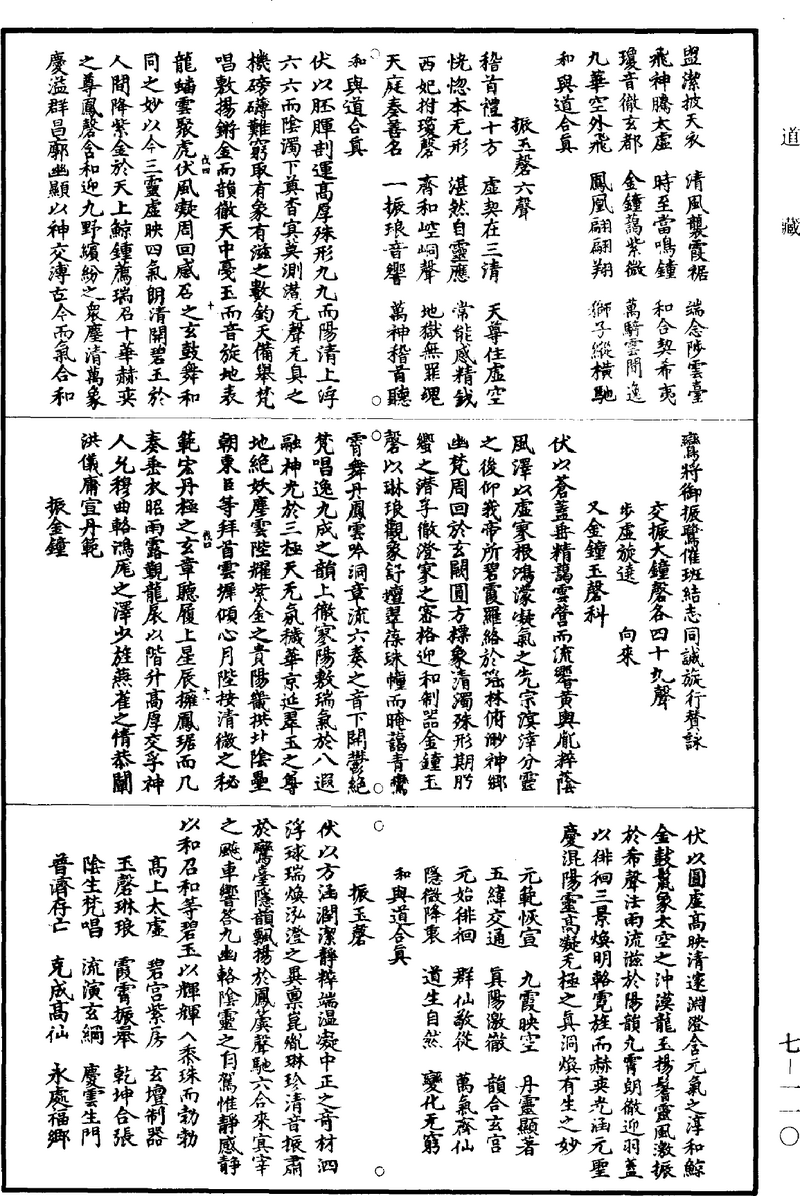 道藏
盟潔披天衣　清風襲霞裾　端念陟雲臺
飛神騰太虛　時至當鳴鐘　和合契希夷
瓊音徹玄都　金鐘藹紫微　萬騎雲間逸
九華空外飛　鳳凰翩翩翔　獅子縱橫馳
和與道合真
振玉磬六聲
稽首禮十方　虛契在三清　天尊住虛空
恍惚本无形　湛然自靈應　常能感精誠
西妃拊瓊磬　齊和崆峒聲　地獄無罪魂
天庭奏善名　一振琅音響　萬神稽首聽
和與道合真
伏以胚腪剖運高厚殊形九九而陽清上浮
六六而陰濁下奠杳冥莫測潛无聲无臭之
機磅礡難窮取有象有滋之數鈞天備舉梵
唱敷揚鏘金而韻徹天中戞玉而音旋地表
龍蟠雲聚虎伏風凝周回感召之玄鼓舞和
同之妙以今三靈虛映四氣朗清開碧玉於
人間降紫金於天上鯨鐘薦瑞召十華赫奕
之尊鳳磬含和迎九野繽紛之衆塵清萬象
慶溢群昌廓幽顯以神交溥古今而氣合和
鸞將御振鷺催班結志同誠旅行贊詠
交振大鐘磬各四十九聲
步虛旋遶　向來
又金鐘玉磬科
伏以蒼蓋垂精藹雲營而流響黃輿胤粹蔭
風澤以虛寥根鴻濛凝氣之先宗溟涬分靈
之後仰我帝所碧霞羅絡於瑤林俯渺神鄉
幽梵周回於玄闕圓方標象清濁殊形期肸
蠁之潛孚徹澄寥之密格迎和制器金鐘玉
磬以琳琅觀象舒壇翠葆珠幢而晻藹青鸞
霄舞丹鳳雲吟洞章流六奏之音下開鬱絕
梵唱逸九成之韻上徹寥陽敷瑞氣於八遐
融神光於三極天无氛穢華京延翠玉之尊
地絕妖塵雲陛耀紫金之貴陽畿拱北陰壘
朝東臣等拜首雲墀傾心月陛按清微之秘
範宏丹極之玄章聽履上星辰擁鳳琚而几
奏垂衣昭雨露觀龍扆以階升高厚交孚神
人允穆曲輅鴻厖之澤少旌燕雀之情恭闡
洪儀庸宣丹範
振金鐘
伏以圓虛高映清邃淵澄含元氣之淳和鯨
金鼓鬣象太空之沖漠龍玉揚鬐靈風激振
於希聲法雨流滋於陽韻九霄朗徹迎羽蓋
以徘徊三景煥明輅霓旌而赫奕光涵元聖
慶混陽靈高凝无極之真洞煥有生之妙
元範恢宣　九霞映空　丹靈顯著
五緯交通　真陽激徹　韻合玄宮
元始徘徊　群仙敬從　萬氣齊仙
隱微降衷　道生自然　變化无窮
和與道合真
振玉磬
伏以方涵潤潔靜粹端溫凝中正之奇材泗
浮球瑞煥泓澄之異稟崑胤琳珍清音振肅
於鸞臺隱韻飄揚於鳳虡聲馳六合來真宰
之飈車響答九幽輅陰靈之月駕惟靜感靜
以和召和等碧玉以輝輝入黍珠而勃勃
高上太虛　碧宮紫房　玄壇制器
玉磬琳琅　霞霄振舉　乾坤合張
陰生梵唱　流演玄綱　慶雲生門
普濟存亡　克成高仙　永處福鄉
七—一一〇